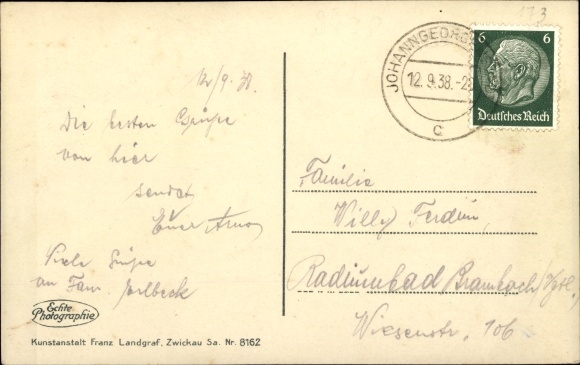 12/9.38.
Die besten Grüße
von hier
sendet
Euer Arno
Viele Grüße
an Fam.
Echte
Photographie
Kunstanstalt Franz Landgraf, Zwickau Sa. Nr. 8162
JOHANNGEORG
12.9.38.-2
c
6 6
Deutsches Reich
Familie
Willy
Radiumbad Brambach
Wiesenstr. 106